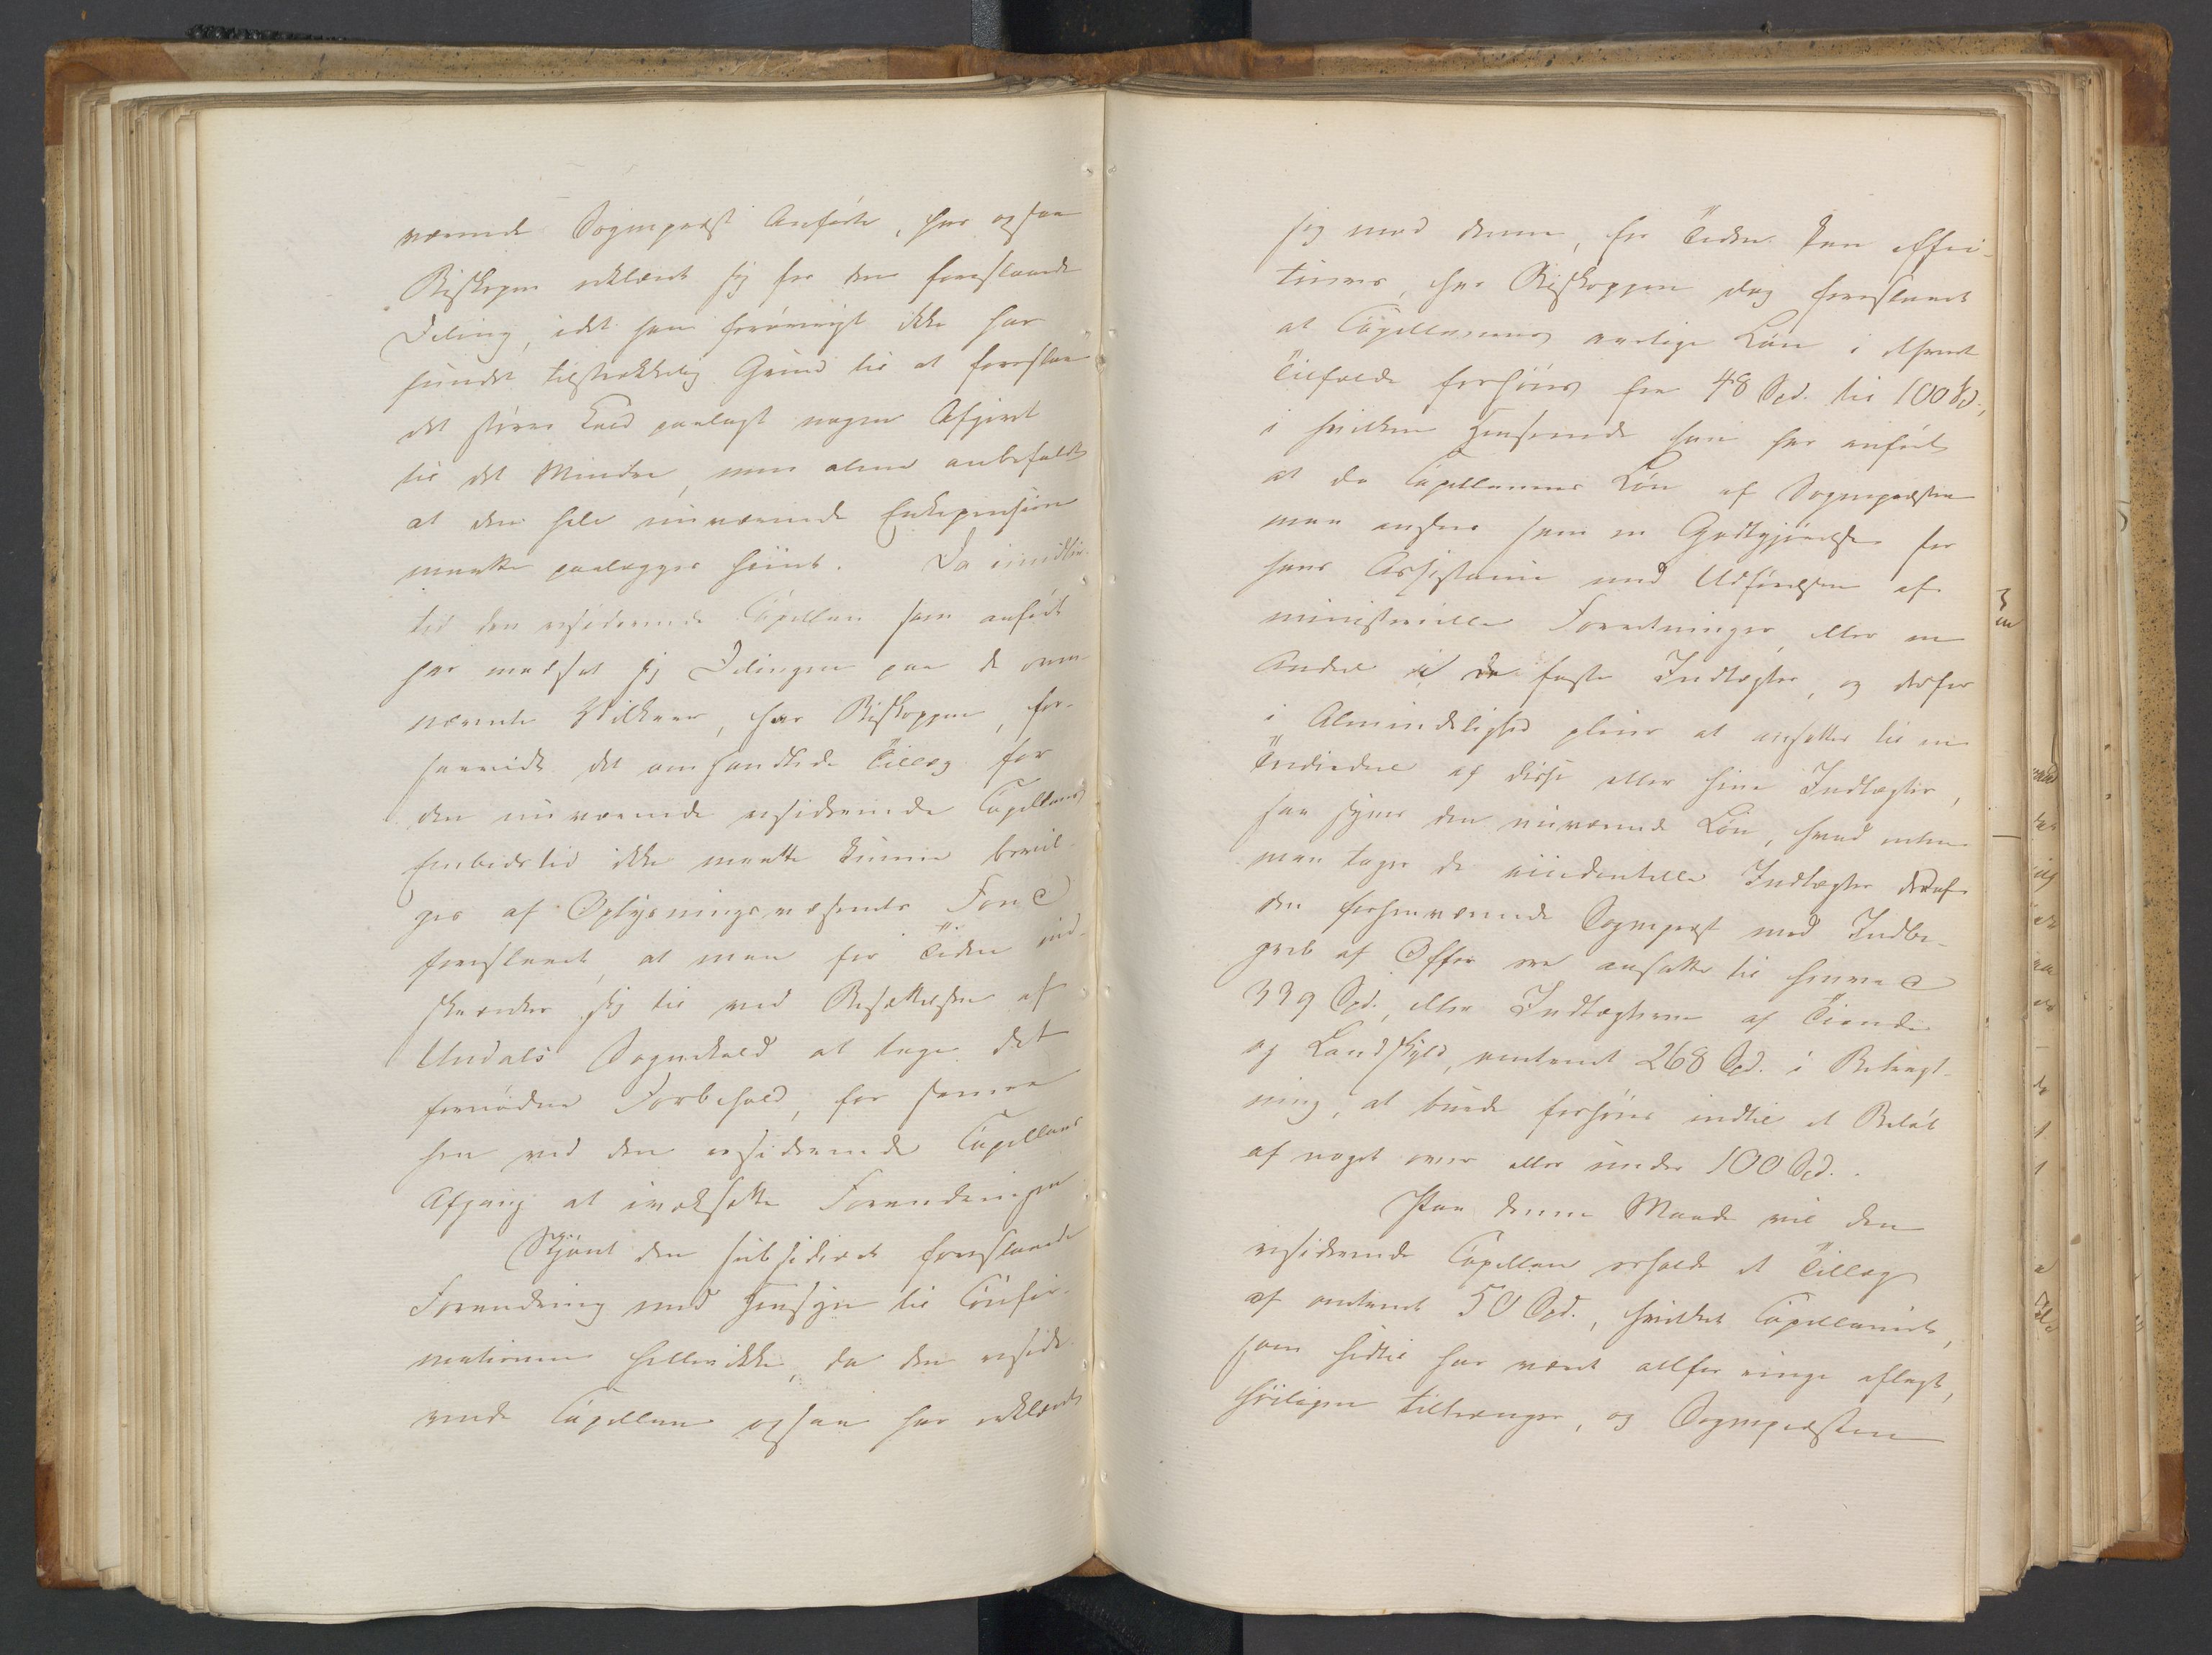 værende Sogneprest Anførte, har ogsaa
Biskopen erklæret sig for den foreslaaede
Deling, idet han forøvrigt ikke har
fundet tilstrækkelig Grund til at foreslaae
det større Kald paalagt nogen Afgivt
til det Mindre, men alene anbefalet
at den hele nuværende Enkepension
maatte paalægges hiint. Da imidler-
tid den residerende Capellan som anført
har modsat sig Delingen paa de oven-
nævnte Vilkaar, har Biskoppen, for-
saavidt det omhandlede Tillæg for
den nuværende residerende Capellans
Embedstid ikke maatte kunne bevil-
ges af Oplysningsvæsenets Fond
foreslaaet, at man for Tiden ind-
skrænker sig til ved Besættelsen af
Undals Sognekald at tage det
fornødne Forbehold, for senere
hen ved den residerende Capellans
Afgang at iværksætte Forandringen
Skjønt den subsidiært foreslaaede
Forandring med Hensyn til Confir-
mationen hellerikke, da den reside-
rende Capellan ogsaa har erklæret
sig mod denne, for Tiden kan effec-
tueres, har Biskoppen dog foreslaaet
at Capellanens aarlige Løn i ethvert
Tilfælde forhøies fra 48 Spd. til 100 Spd.,
i hvilken Henseende han har anført
at da Capellanens Løn af Sognepresten
maa ansees som en Godtgjørelse for
hans Assistance med Udførelsen af
ministerielle Forretninger, eller en
Andel i de faste Indtægter, og derfor
i Almindelighed pleier at ansættes til en
Trediedeel af disse eller hine Indtægter,
saa synes den nuværende Løn, hvad enten
man tager de accidentelle Indtægter deraf
den forhenværende Sogneprest med Indbe-
greb af Offer ere ansatte til henved
339 Spd., eller Indtægterne af Tiende
og Landskyld, omtrent 268 Spd. i Betragt-
ning, at burde forhøies indtil et Beløb
af noget over eller under 100 Spd..
Paa denne Maade vil den
residerende Capellan erholde et Tillæg
af omtrent 50 Spd., hvilket Capellaniet,
som hidtil har været altfor ringe aflagt,
høiligen tiltrænger, og Sognepresten